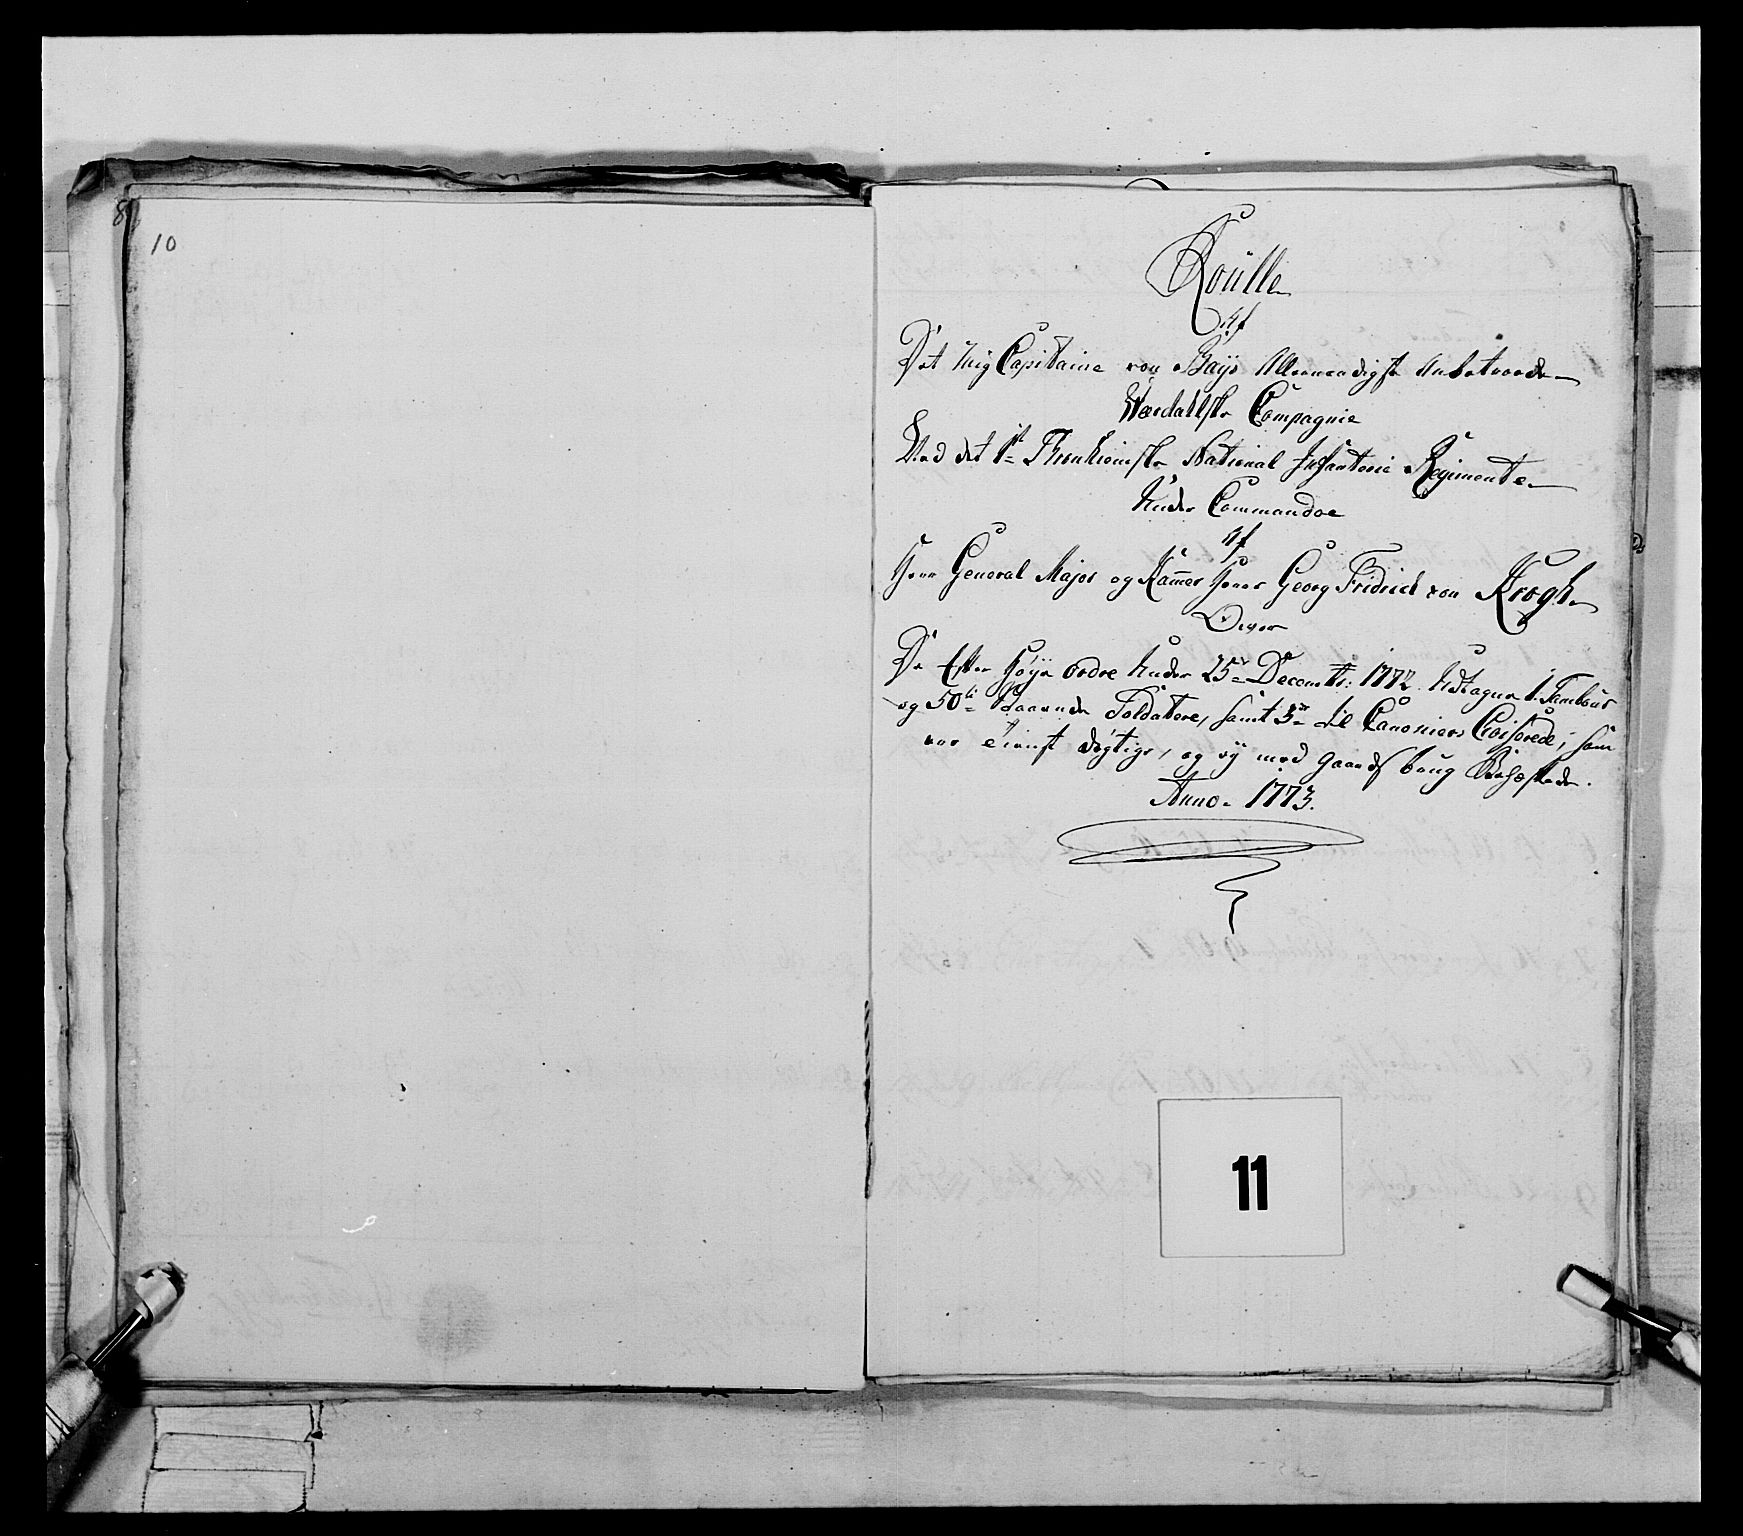 10
Roulle
Af
Det mig Capitaine von Bays Allernaadigst Anbetroede
Værdahlske Compagnie
Ved det 1te Thronhiemske National Infanterie Regimente
Under Commandoe
Af
Herr General Major og Kam̄er Herr Georg Fridrich von Krogh
Over
De Efter Høye Ordre Under 25de Decembr: 1772 Udtagne 1. Tambour
og 50ti Soldatere, samt 3de til Canoniers, som
ere dygtige, og ey med Gaards brug
Anno 1773.
11